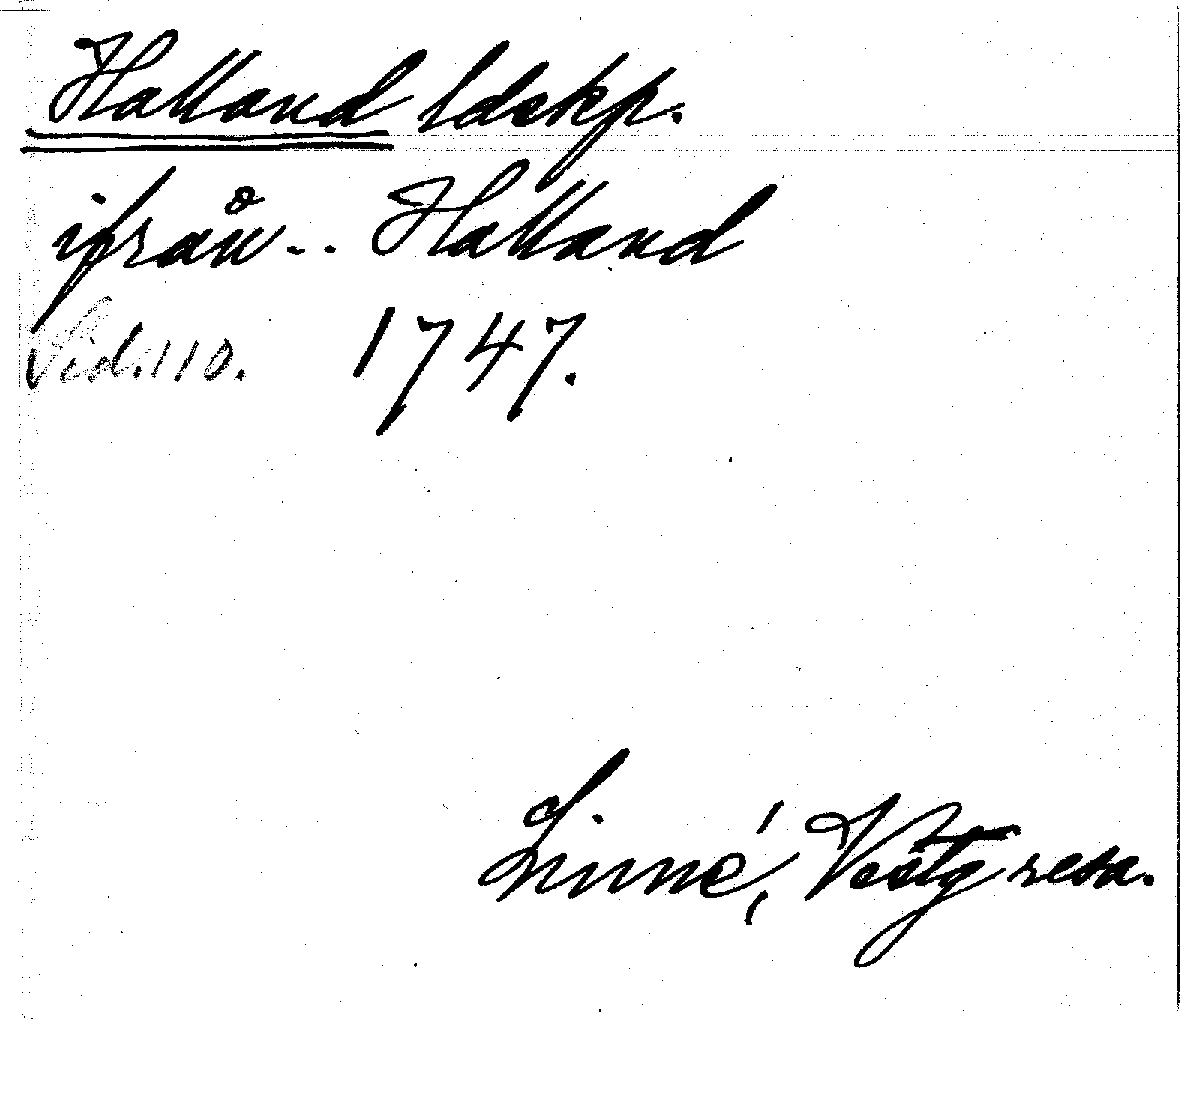 Halland ldskp.
ifrån -- Halland
Sid. 110. 1747.
Linné, Västg resa.